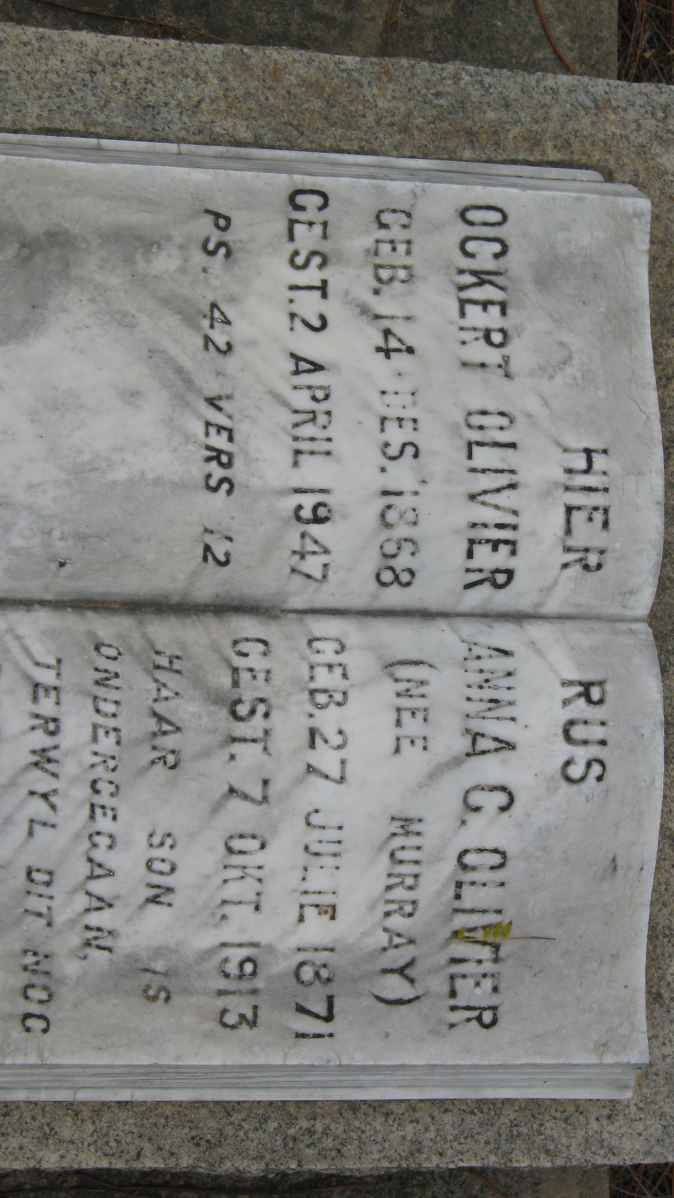 HIER RUS
OCKERT OLIVIER
GEB. 14 DES. 1868
GEST. 2 APRIL 1947
PS. 42 VERS 12
ANNA C. OLIVIER
(NEE MURRAY)
GEB. 27 JULIE 1871
GEST. 7 OKT. 1913
HAAR SON IS
ONDERGEGAAN,
TERWYL DIT NOG